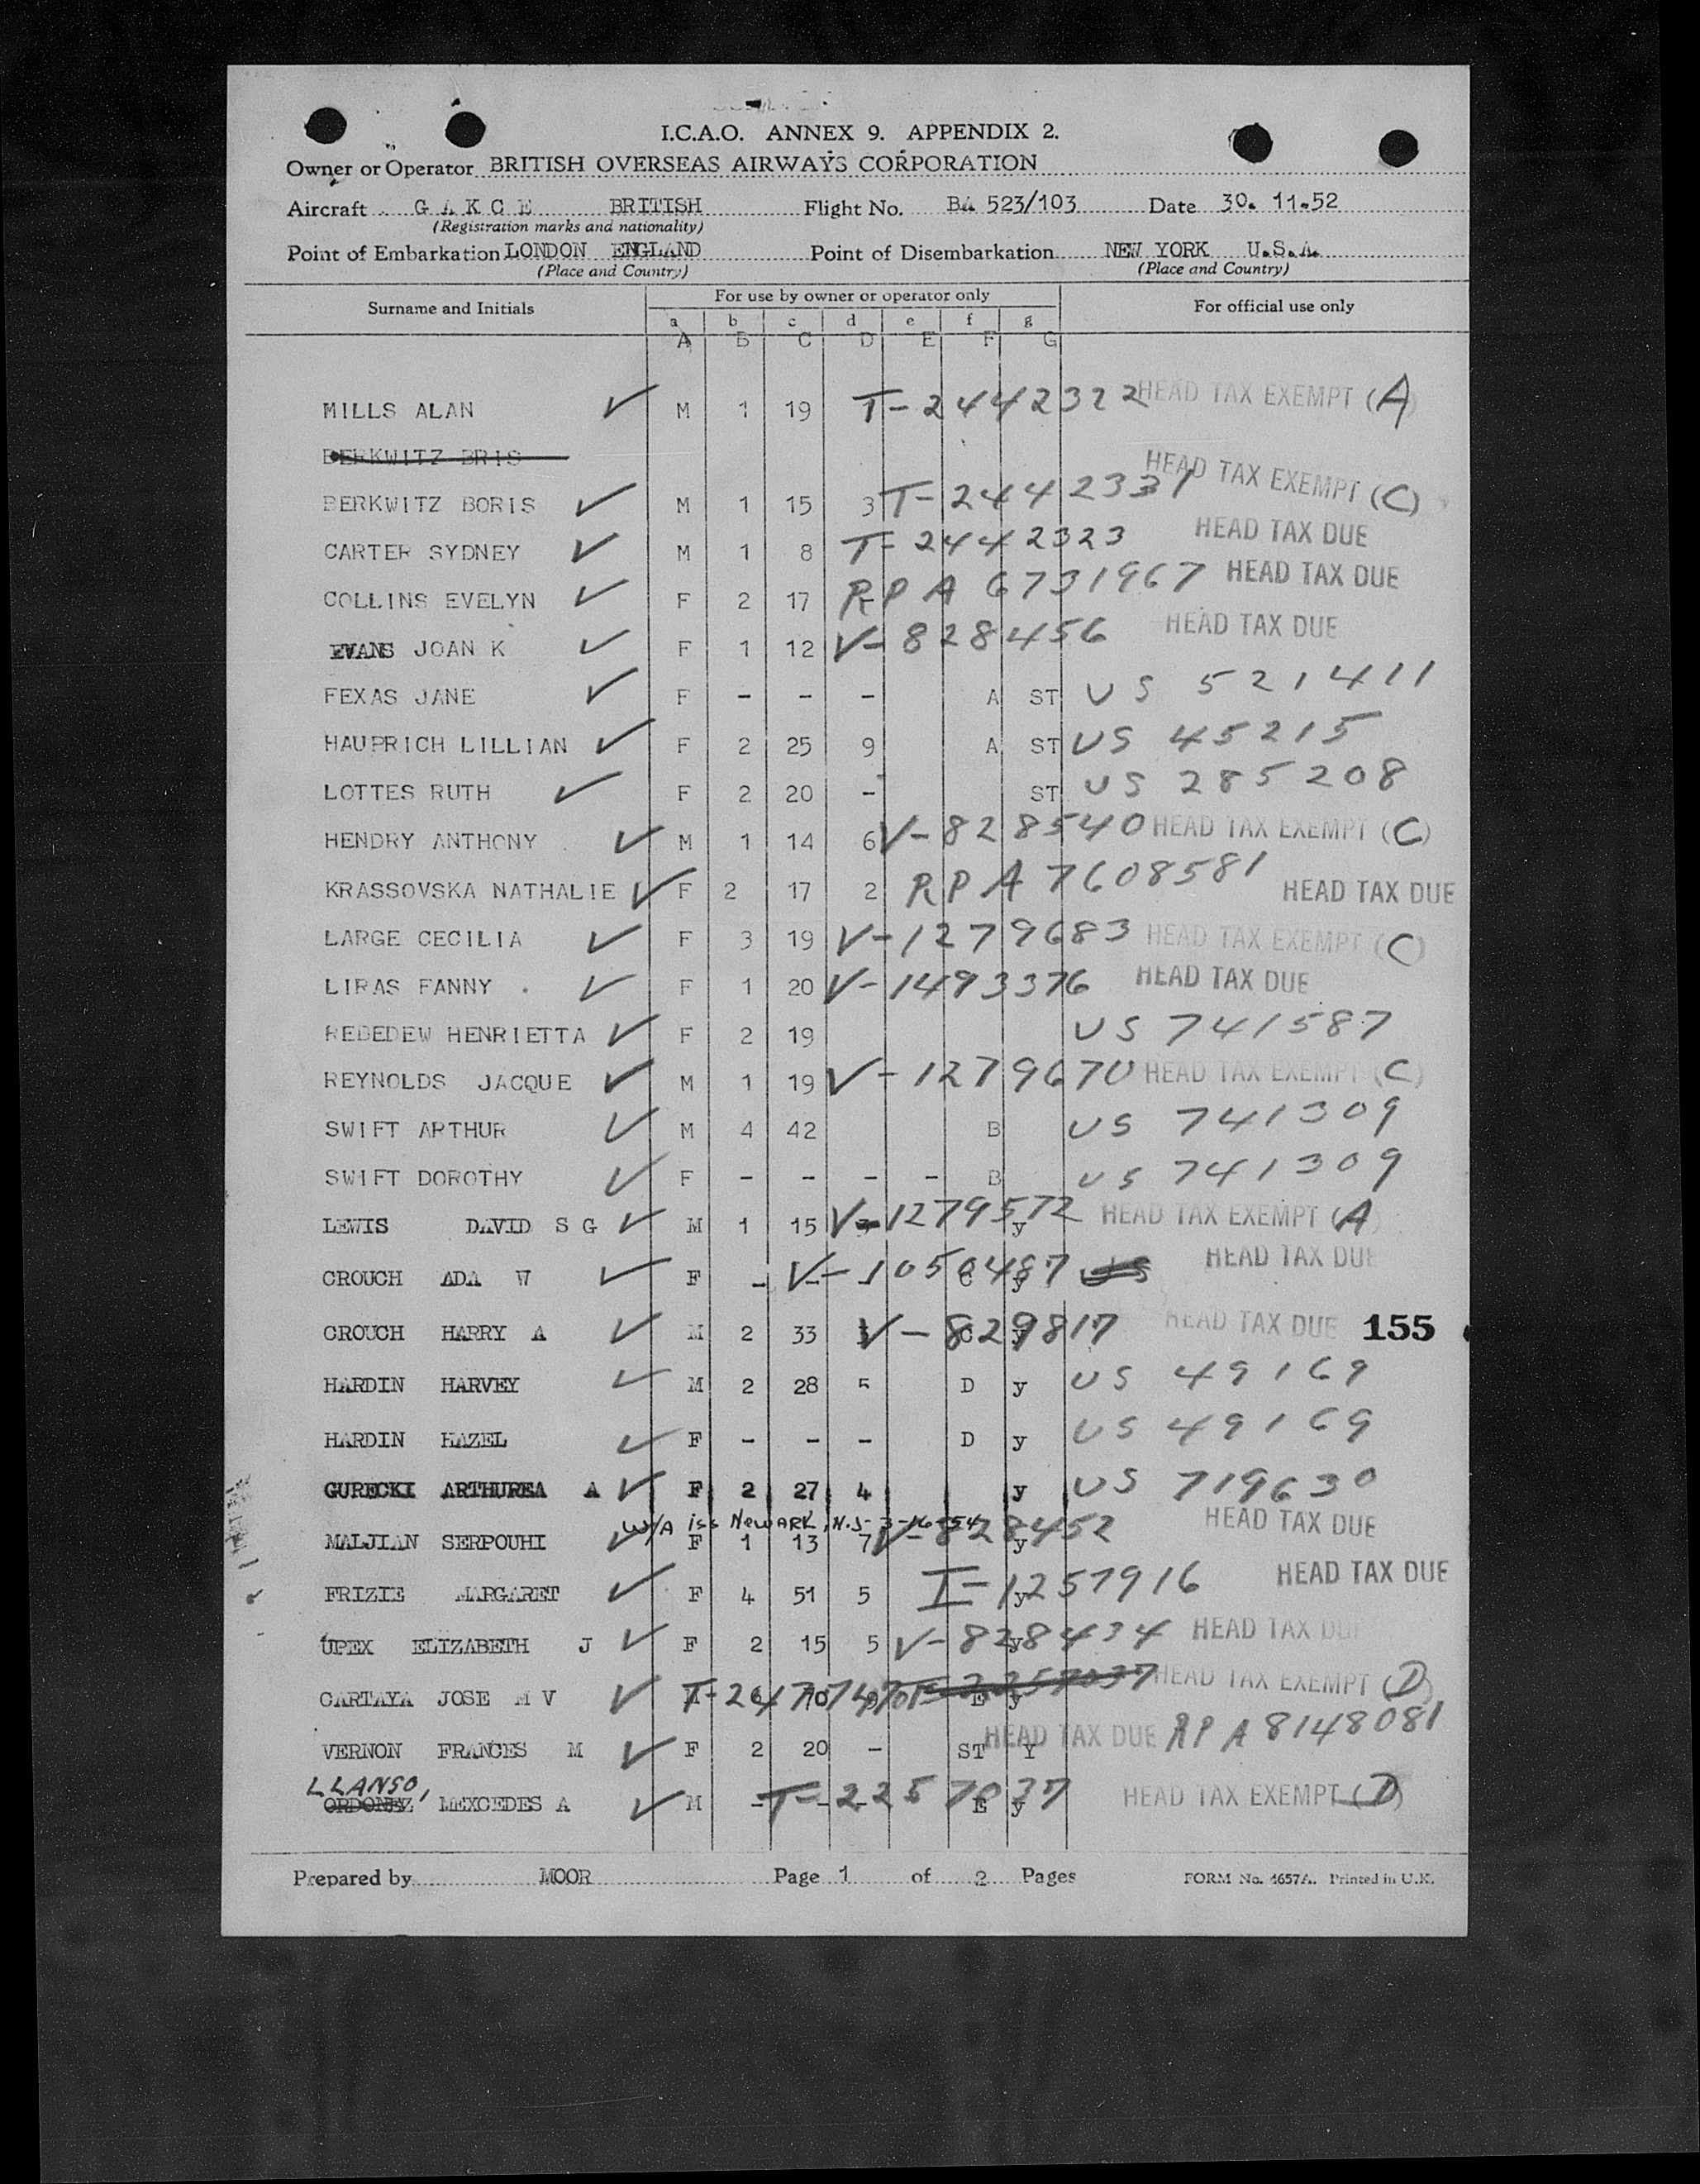 I.C.A.O. ANNEX 9. APPENDIX 2.
Owner or Operator BRITISH OVERSEAS AIRWAYS CORPORATION
Aircraft G A K C E BRITISH Flight No. BA 523/103 Date 30. 11-52
(Registration marks and nationality)
Point of Embarkation LONDON ENGLAND Point of Disembarkation NEW YORK U.S.A.
(Place and Country) (Place and Country)
Surname and Initials For use by owner or operator only For official use only
a b c d e f g
A B C D E F G
MILLS ALAN M 1 19 T-2442322 HEAD TAX EXEMPT (A)
BERKWITZ BRIS
BERKWITZ BORIS M 1 15 3 T-2442331 HEAD TAX EXEMPT (C)
CARTER SYDNEY M 1 8 T-2442323 HEAD TAX DUE
COLLINS EVELYN F 2 17 - RP A 6731967 HEAD TAX DUE
EVANS JOAN K F 1 12 V-828456 HEAD TAX DUE
FEXAS JANE F - - - A ST US 521411
HAUPRICH LILLIAN F 2 25 9 A ST US 45215
LOTTES RUTH F 2 20 - ST US 285208
HENDRY ANTHONY M 1 14 6 V-828540 HEAD TAX EXEMPT (C)
KRASSOVSKA NATHALIE F 2 17 2 RP A 7608581 HEAD TAX DUE
LARGE CECILIA F 3 19 V-1279683 HEAD TAX EXEMPT (C)
LIRAS FANNY F 1 20 V-1493376 HEAD TAX DUE
REBEDEW HENRIETTA F 2 19 US 741587
REYNOLDS JACQUE M 1 19 V-1279670 HEAD TAX EXEMPT (C)
SWIFT ARTHUR M 4 42 B US 741309
SWIFT DOROTHY F - - - - B US 741309
LEWIS DAVID S G M 1 15 V-1279572 y HEAD TAX EXEMPT (A)
CROUCH ADA W F - - - V-1050487 C y US HEAD TAX DUE
CROUCH HARRY A M 2 33 V-829817 C y HEAD TAX DUE 155
HARDIN HARVEY M 2 28 5 D y US 49169
HARDIN HAZEL F - - - D y US 49169
GURECKI ARTHUREA A F 2 27 4 y US 719630
W/A iss Newark, N.J- 3-16-54
MALJIAN SERPOUHI F 1 13 7 V-828452 y HEAD TAX DUE
FRIZIE MARGARET F 4 51 5 I-1257916 y HEAD TAX DUE
UPEX ELIZABETH J F 2 15 5 V-828434 y HEAD TAX DUE
CARTAYA JOSE M V T-2257037 E y HEAD TAX EXEMPT (D)
VERNON FRANCES M F 2 20 - ST Y HEAD TAX DUE RP A 8148081
LLANSO,
ORDONEZ MEXCEDES A M - - - T-2257037 E y HEAD TAX EXEMPT (D)
Prepared by MOOR Page 1 of 2 Pages FORM No. 4657A. Printed in U.K.